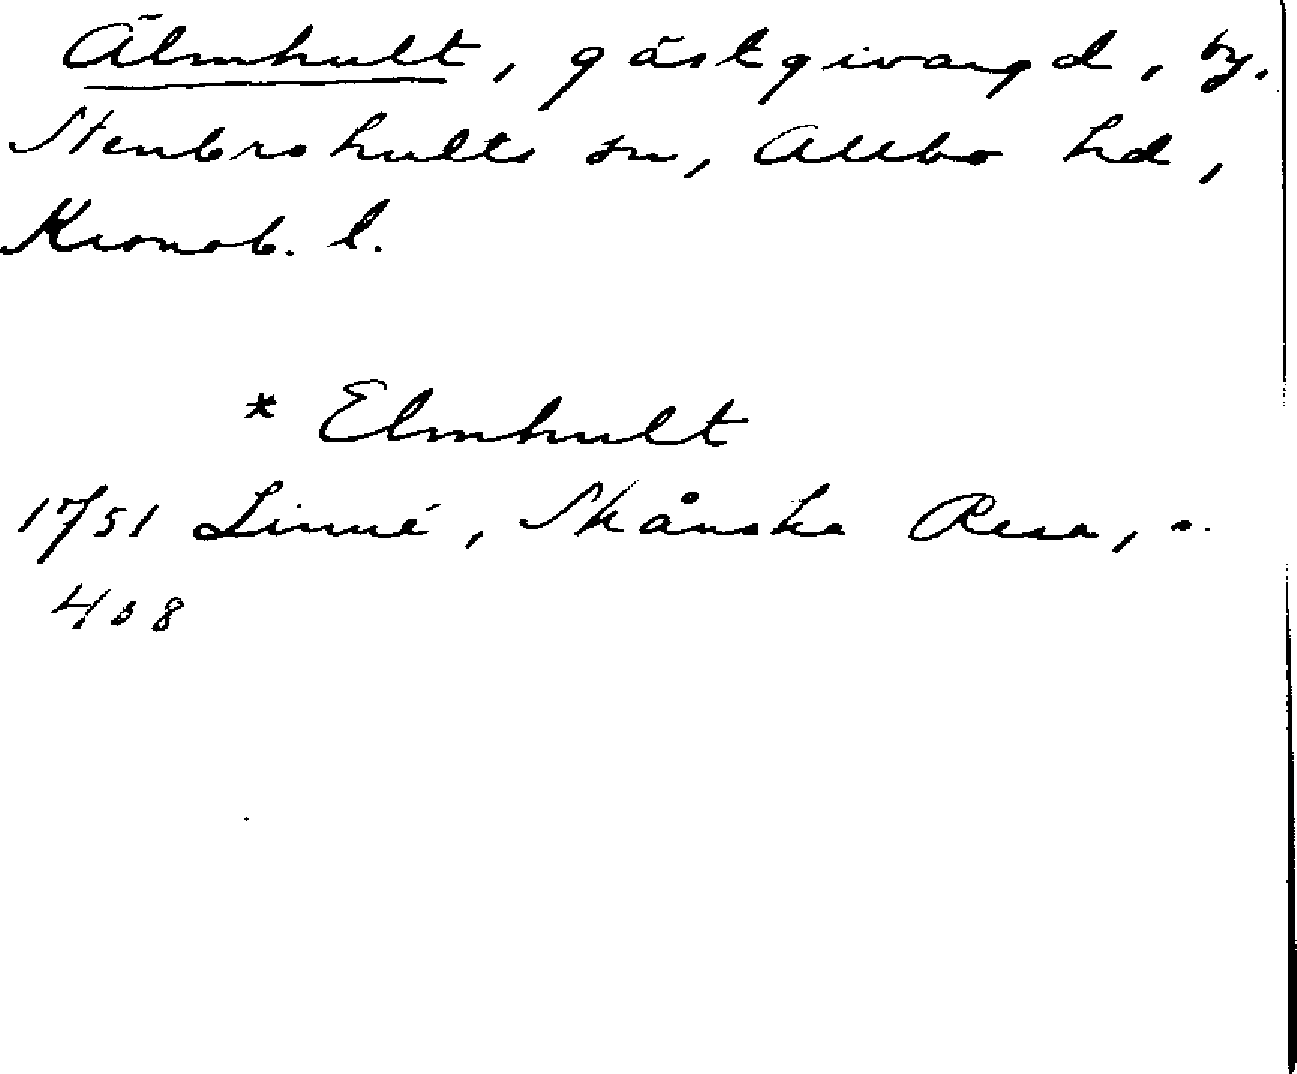 Älmhult, gästgivargd, by.
Stenbrohults sn, Allbo hd,
Kronob. l.
* Elmhult
1751 Linné, Skånska Resa, s.
408